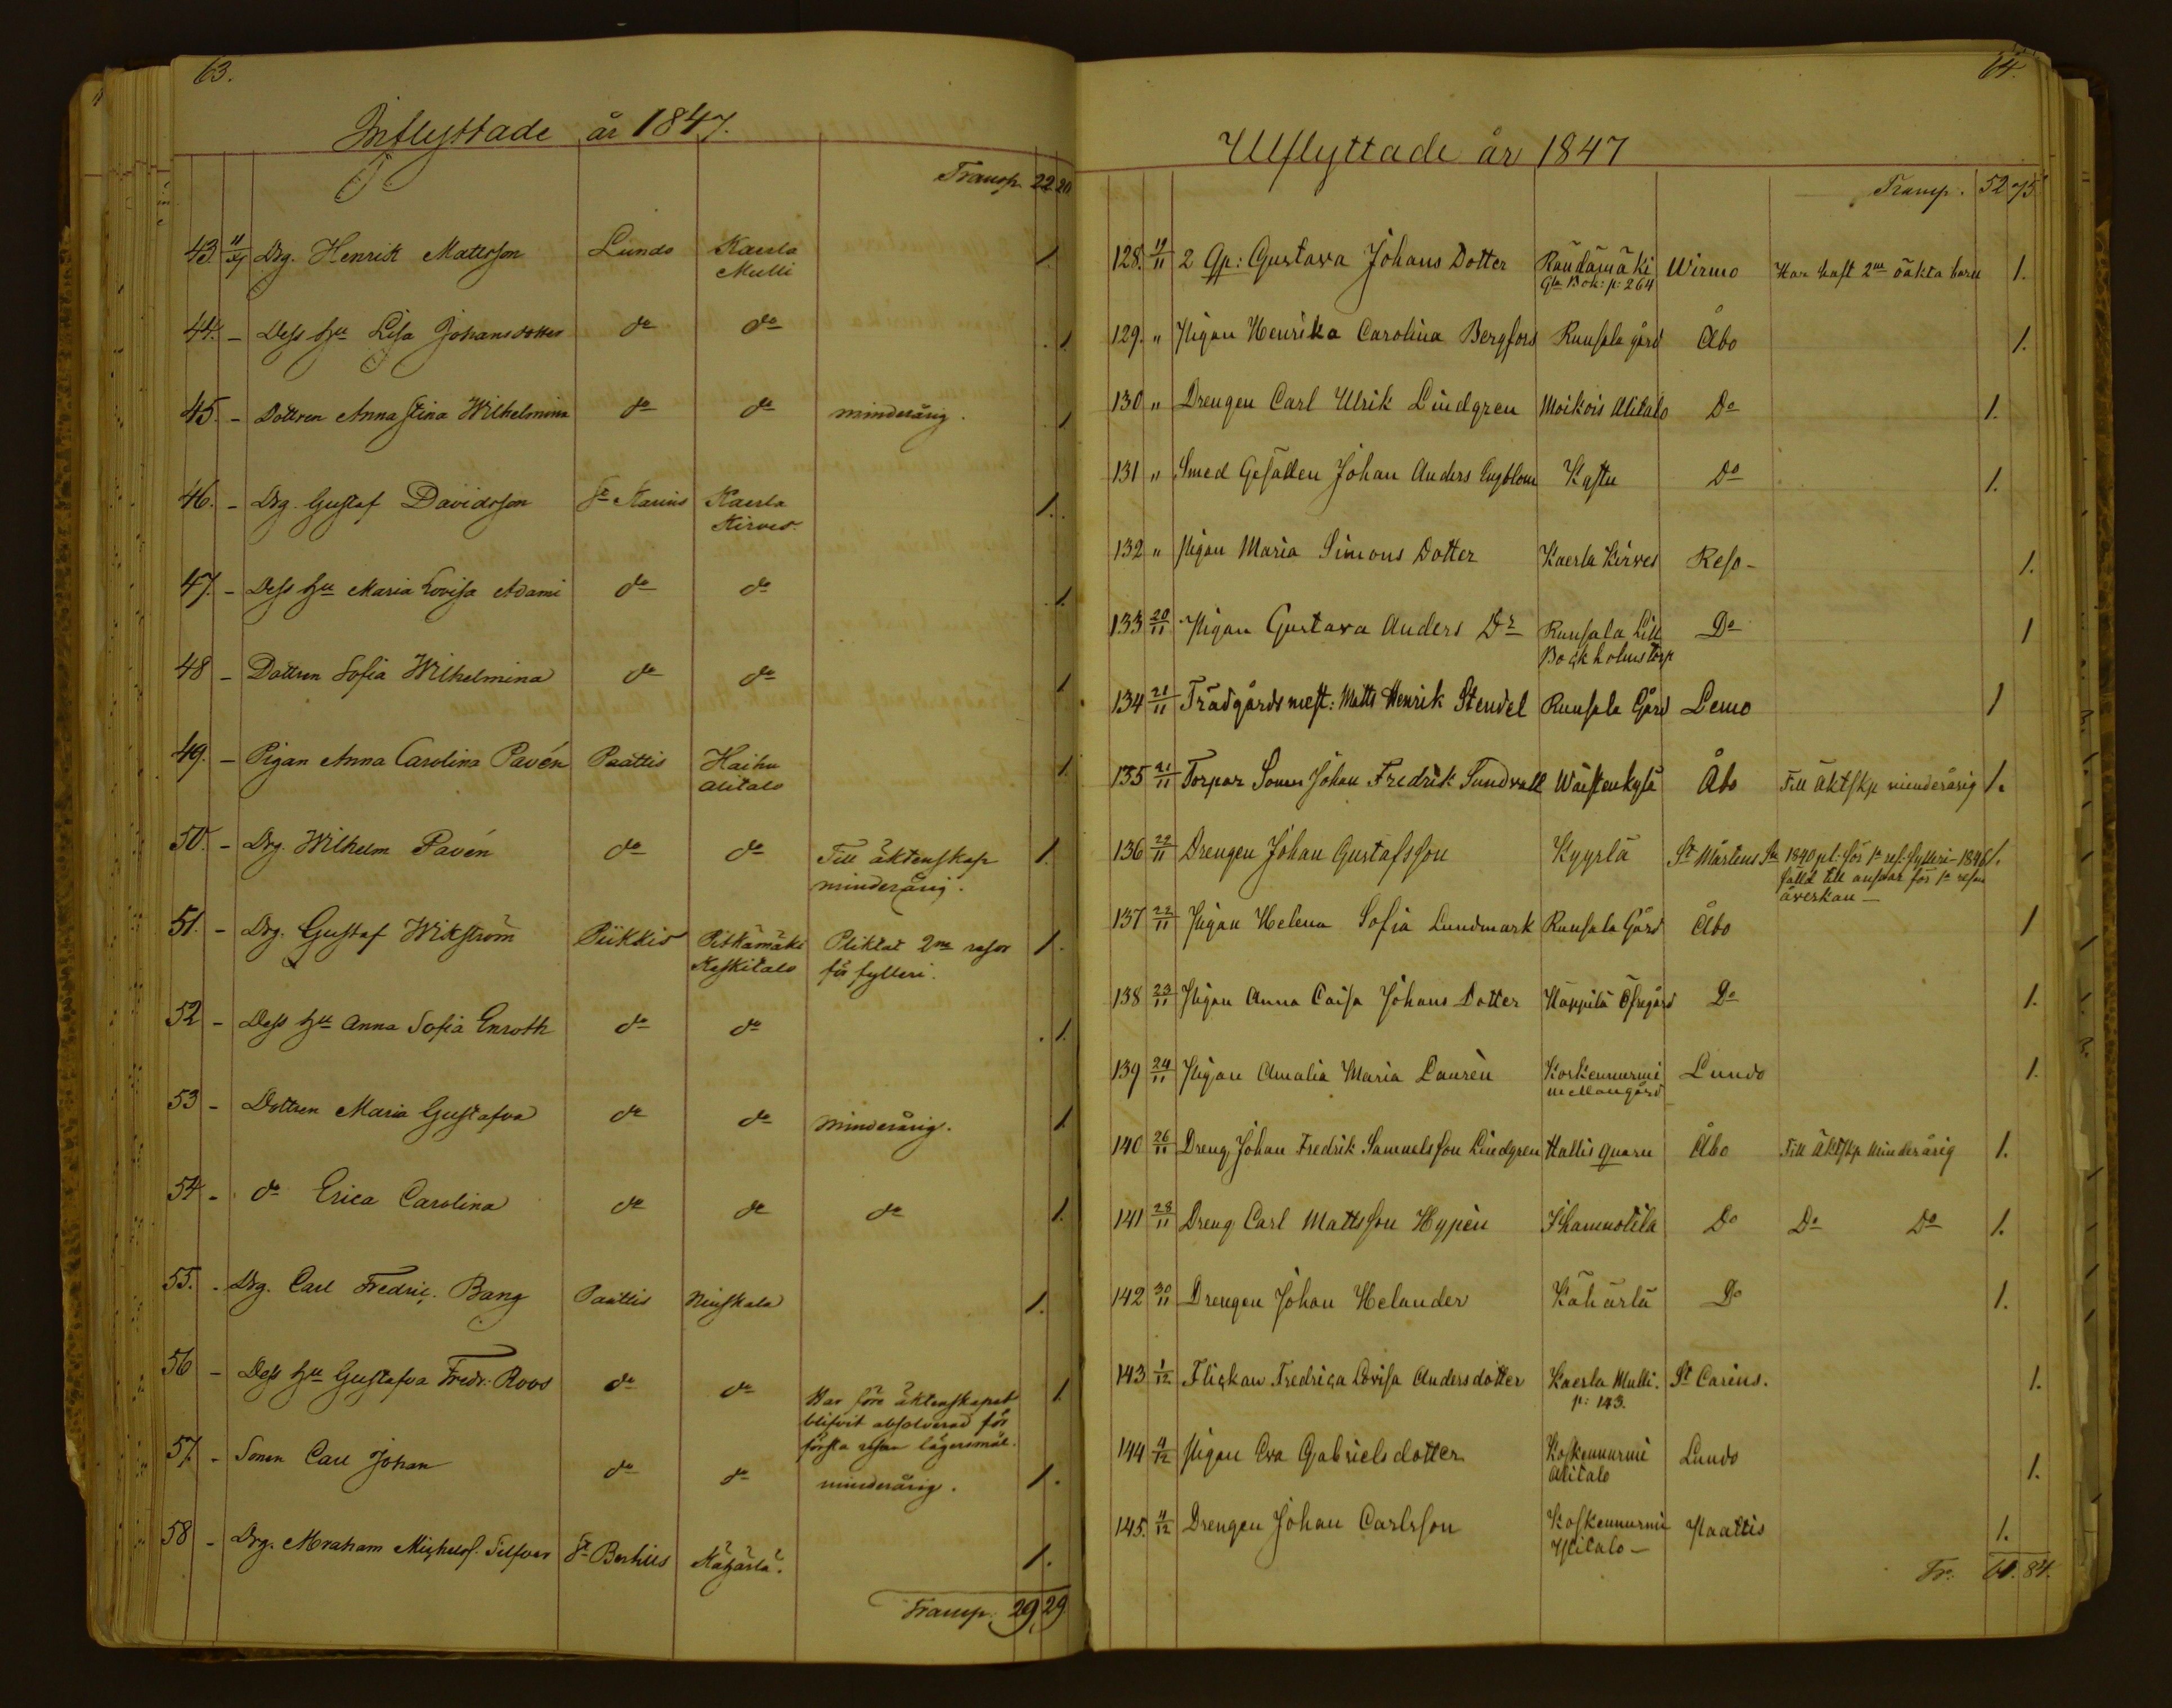 63.
Inflyttade år 1847.
Transp. 22 20
43. 11/11 Drg. Henrik Mattsson Lundo Kaerla 1.
Mulli
44. - Dess hu Lisa Johansdotter do do 1.
45. - Dottren Anna Stina Wilhelmina do do minderårig. 1
46. - Drg. Gustaf Davidsson St Karins Kaerla 1.
Kirves.
47 - Dess hu Maria Lovisa Adami do do 1.
48 - Dottren Sofia Wilhelmina do do 1
49. - Pigan Anna Carolina Pavén Paattis Haihu 1.
Alitalo
50. - Drg. Wilhelm Pavén do do Till äktenskap 1.
minderårig.
51. - Drg. Gustaf Wikström Piikkis Pitkämäki Pliktat 2ne resor 1.
Keskitalo för fylleri.
52 - Dess hu Anna Sofia Enroth do do 1.
53 - Dottren Maria Gustafva do do minderårig. 1
54 - do Erica Carolina do do do 1.
55. - Drg. Carl Fredric. Bang Paattis Niuskala 1.
56 - Dess hu Gustafva Fredr. Roos do do Har före äktenskapet 1
blifvit absolverad för
första resan lägersmål.
57. - Sonen Carl Johan do do minderårig. 1.
58 - Drg. Abraham Michelss. Silfver St Bertils Kähärlä. 1.
Transp. 29 29
64.
Utflyttade år 1847
Transp. 52 75
128. 19/11 2 Qp: Gustava Johans Dotter Rändämäki Wirmo Har haft 2ne oäkta barn 1.
Gla Bok: p: 264
129. " Pigan Henrika Carolina Bergfors Runsala gård Åbo 1.
130 " Drengen Carl Ulrik Lindgren Moikois Alitalo Do 1.
131 " Smed Gesällen Johan Anders Engblom Kastu Do 1.
132 " Pigan Maria Simons Dotter Kaerla Kirves Reso - 1.
133 20/11 Pigan Gustava Anders Dr Runsala Lill Do 1
Bockholmstorp
134 21/11 Trädgårdsmest: Matts Henrik Stendel Runsala Gård Lemo 1
135 21/11 Torpar Sonen Johan Fredrik Sundvall Wäistenkylä Åbo Till Äktskp minderårig 1.
136 22/11 Drengen Johan Gustafsson Kyyrlä St Mårtens 1840 pl. för 1a res. fylleri - 1846 1.
fälld till ansvar för 1a resan
åverkan -
137 22/11 Pigan Helena Sofia Lundmark Runsala Gård Åbo 1
138 23/11 Pigan Anna Caisa Johans Dotter Käppilä Öfregård Do 1.
139 24/11 Pigan Amalia Maria Laurèn Koskennurmi Lundo 1.
mellangård
140 26/11 Dreng Johan Fredrik Samuelsson Lindgren Hallis Quarn Åbo Till Äktskp Minderårig 1.
141 28/11 Dreng Carl Mattsson Hypèn Ihamnotila Do Do Do 1.
142 30/11 Drengen Johan Helander Kähärlä Do 1.
143 1/12 Flickan Fredrica Lovisa Andersdotter Kaerla Mulli. St Carins. 1.
p: 143.
144 4/12 Pigan Eva Gabrielsdotter Koskennurmi Lundo 1.
Alitalo
145. 4/12 Drengen Johan Carlsson Koskennurmi Paattis 1.
Ylitalo -
Tr. 61. 84.